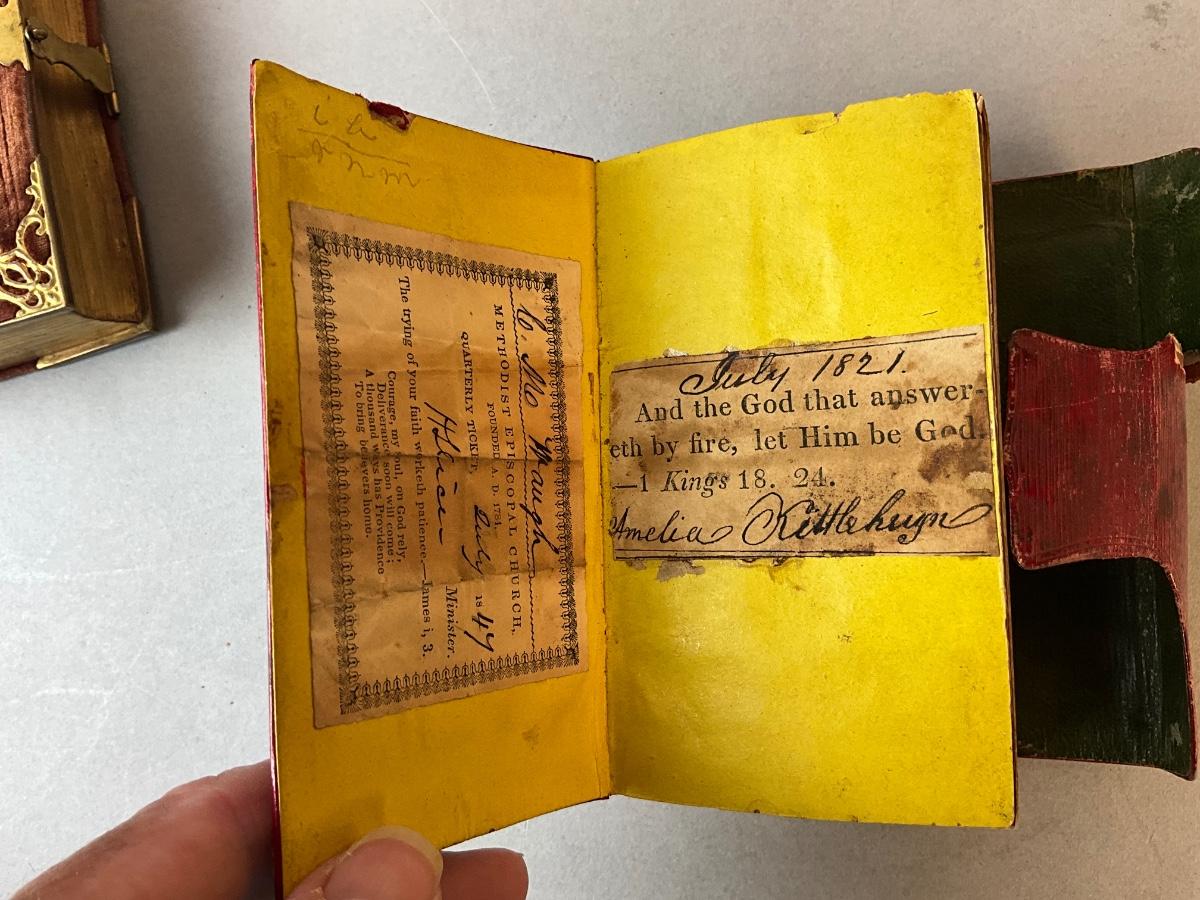 METHODIST EPISCOPAL CHURCH,
FOUNDED A. D. 1784.
QUARTERLY TICKET, July 1847
Minister.
The trying of your faith worketh patience.—James i, 3.
Courage, my soul, on God rely,
Deliverance soon will come;
A thousand ways has Providence
To bring believers home.
July 1821.
And the God that answer-
eth by fire, let Him be God.
—1 Kings 18. 24.
Amelia Kittlehuyn